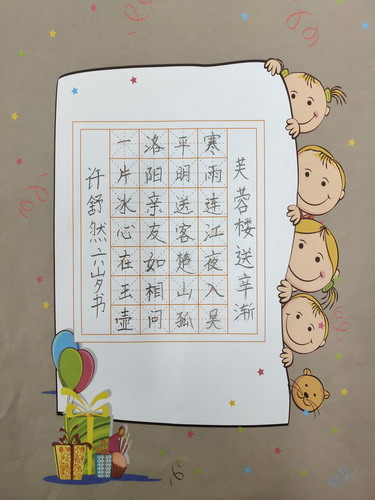 芙蓉楼送辛渐
寒雨连江夜入吴
平明送客楚山孤
洛阳亲友如相问
一片冰心在玉壶
许舒然六岁书